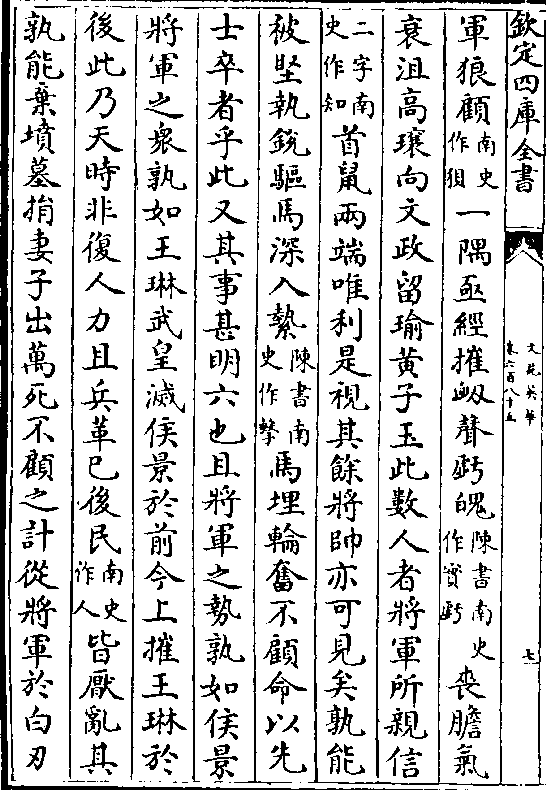 欽定四庫全書
文苑英華
卷六百八十五
七
軍狼顧南史作狽一隅亟經摧衂聲虧魄陳書南史作實虧喪膽氣
衰沮高瓌向文政留瑜黄子玉此數人者將軍所親信
二字南史作知首鼠兩端唯利是視其餘將帥亦可見矣孰能
被堅執銳驅馬深入縶陳書南史作擊馬埋輪奮不顧命以先
士卒者乎此又其事甚明六也且將軍之勢孰如侯景
將軍之衆孰如王琳武皇滅侯景於前今上摧王琳於
後此乃天時非復人力且兵革已後民南史作人皆厭亂其
孰能棄墳墓捐妻子出萬死不顧之計從將軍於白刃